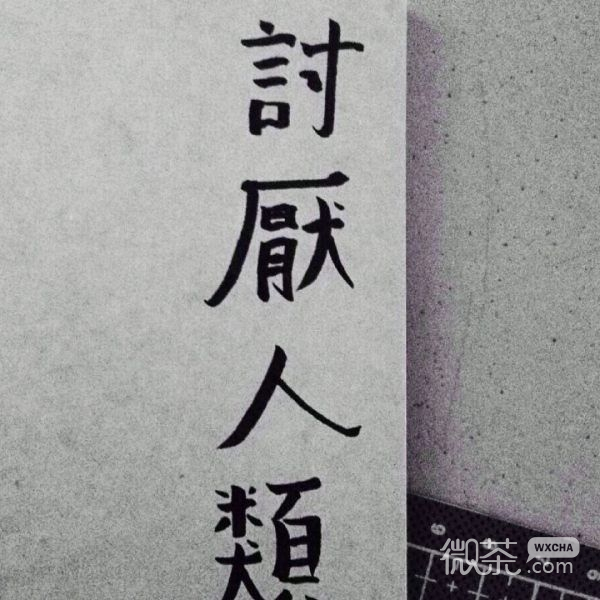 討厭人類
微茶
WXCHA
.com